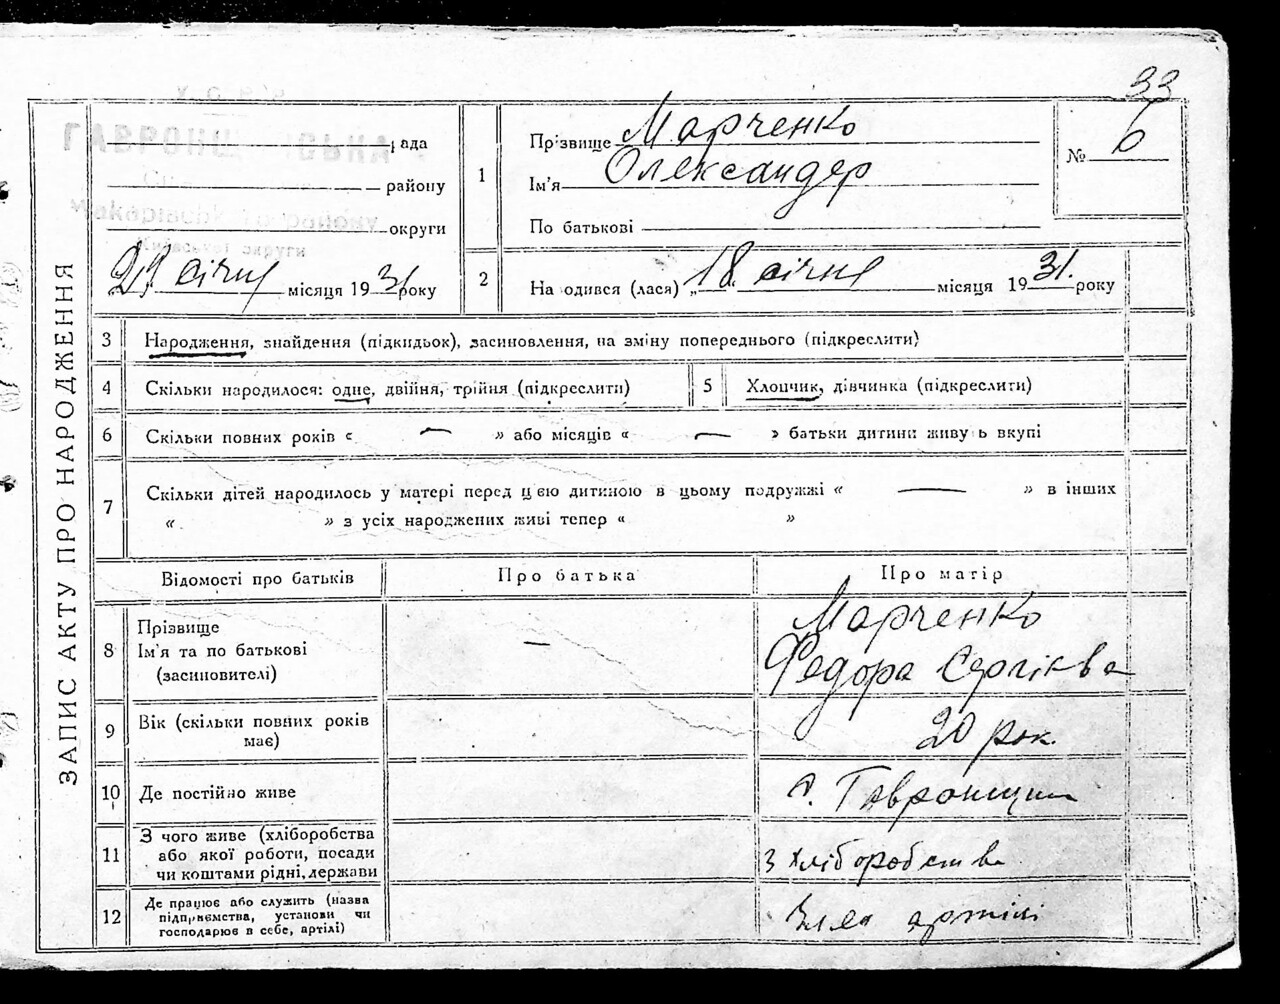 33
ГАВРОНЩ СЬКА
рада
району
округи
Київської округи
23 січня місяця 1931 року
1
Прізвище Марченко
Ім'я Олександер
По батькові
№ 6
2
На одився (лася) „18" січня місяця 1931. року
ЗАПИС АКТУ ПРО НАРОДЖЕННЯ
3 Народження, знайдення (підкидьок), засиновлення, на зміну попереднього (підкреслити)
4 Скільки народилося: одне, двійня, трійня (підкреслити)
5 Хлопчик, дівчинка (підкреслити)
6 Скільки повних років « — » або місяців « — » батьки дитини живуть вкупі
7 Скільки дітей народилось у матері перед цією дитиною в цьому подружжі « — » в інших
« » з усіх народжених живі тепер « »
Відомості про батьків Про батька Про матір
8 Прізвище
Ім'я та по батькові
(засиновителі)
—
Марченко
Федора Сергієва
9 Вік (скільки повних років
має)
20 рок.
10 Де постійно живе
с. Гавронщина
11 З чого живе (хліборобства
або якої роботи, посади
чи коштами рідні, держави
з хліборобства
12 Де працює або служить (назва
підприємства, установи чи
господарює в себе, артілі)
Член артілі